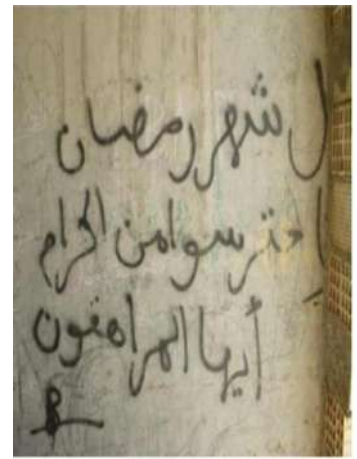 ل شهر رمضان
إحترسوا من الحرام
أيها المراهقون